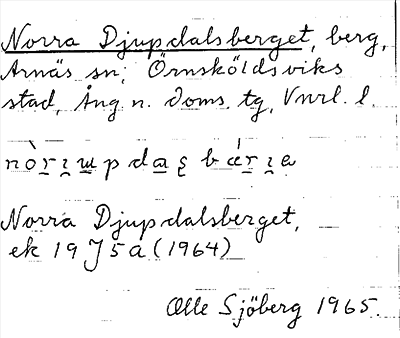 Norra Djupdalsberget, berg,
Arnäs sn, Örnsköldsviks
stad, Ång. n. doms. tg, Vnrl. l.
Norra Djupdalsberget,
ek 19 J 5 a (1964)
Olle Sjöberg 1965.